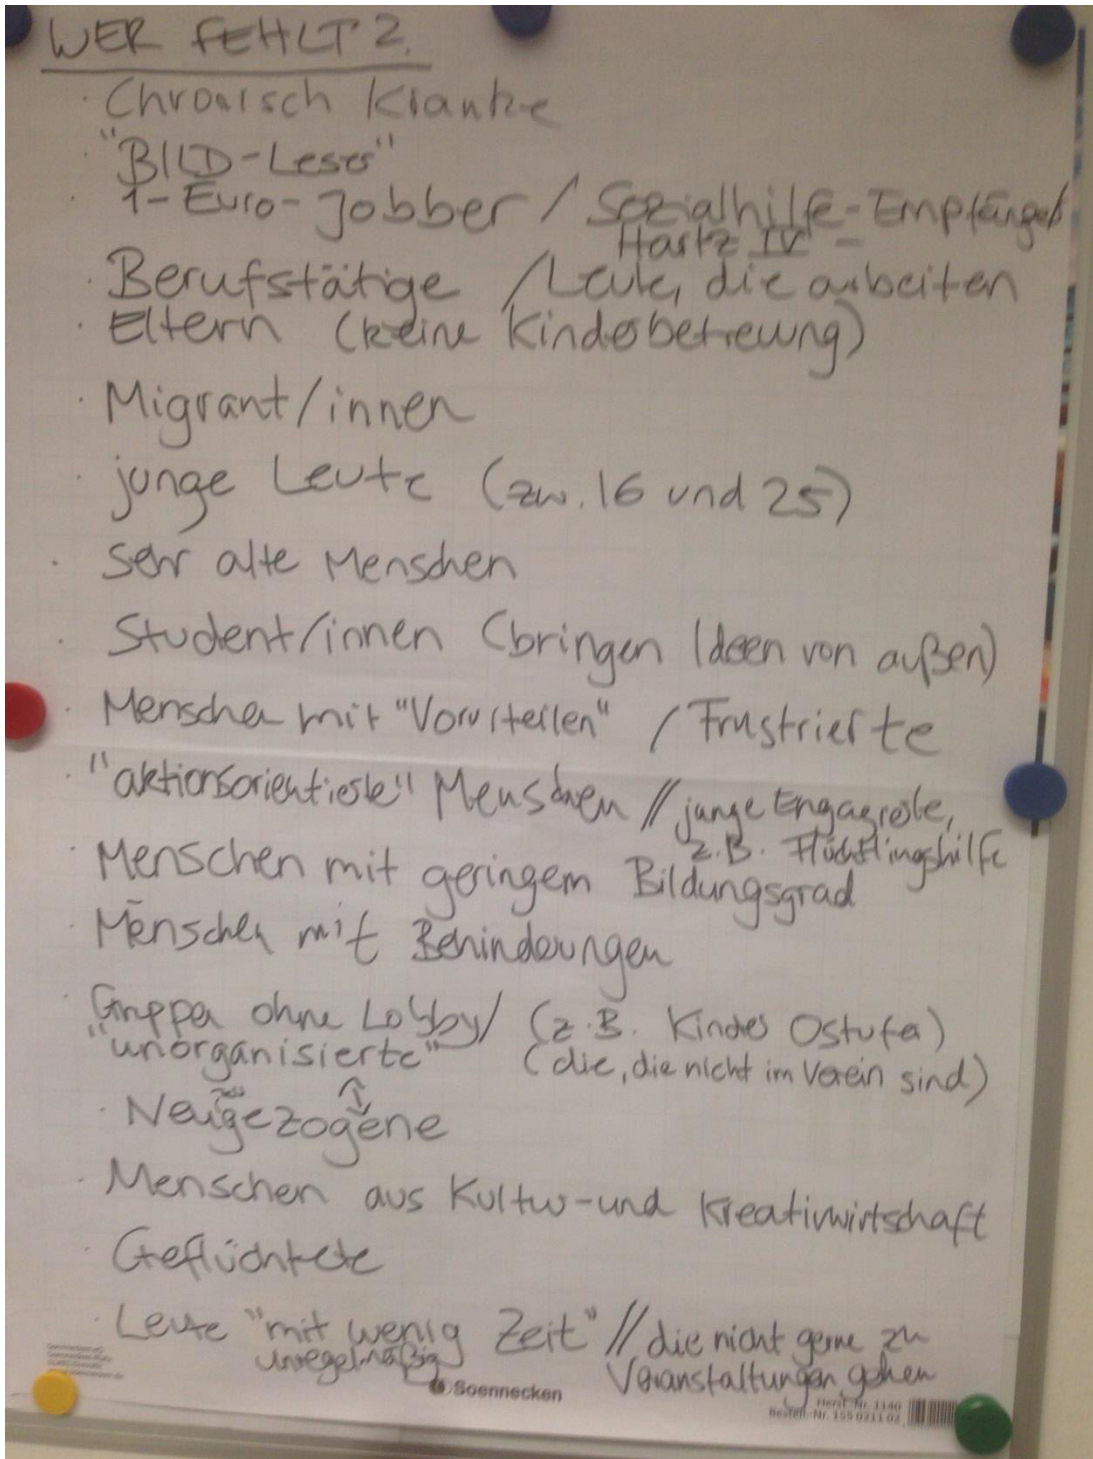 WER FEHLT?
· Chronisch Kranke
· "BILD-Leser"
· 1-Euro-Jobber / Sozialhilfe-Empfänger/
Hartz IV -
· Berufstätige / Leute, die arbeiten
· Eltern (keine Kinderbetreuung)
· Migrant/innen
· junge Leute (zw. 16 und 25)
· Sehr alte Menschen
· Student/innen (bringen Ideen von außen)
· Menschen mit "Vorurteilen" / Frustrierte
· "aktionsorientierte" Menschen // junge Engagierte,
z.B. Flüchtlingshilfe
· Menschen mit geringem Bildungsgrad
· Menschen mit Behinderungen
· Gruppen ohne Lobby/ (z.B. Kinder Ostufer)
"unorganisierte" (die, die nicht im Verein sind)
· Neugezogene
· Menschen aus Kultur-und Kreativwirtschaft
· Geflüchtete
· Leute "mit wenig Zeit" // die nicht gerne zu
unregelmäßig Veranstaltungen gehen
Soennecken
Herst.-Nr. 1140
Bestell.-Nr. 155 0211 02